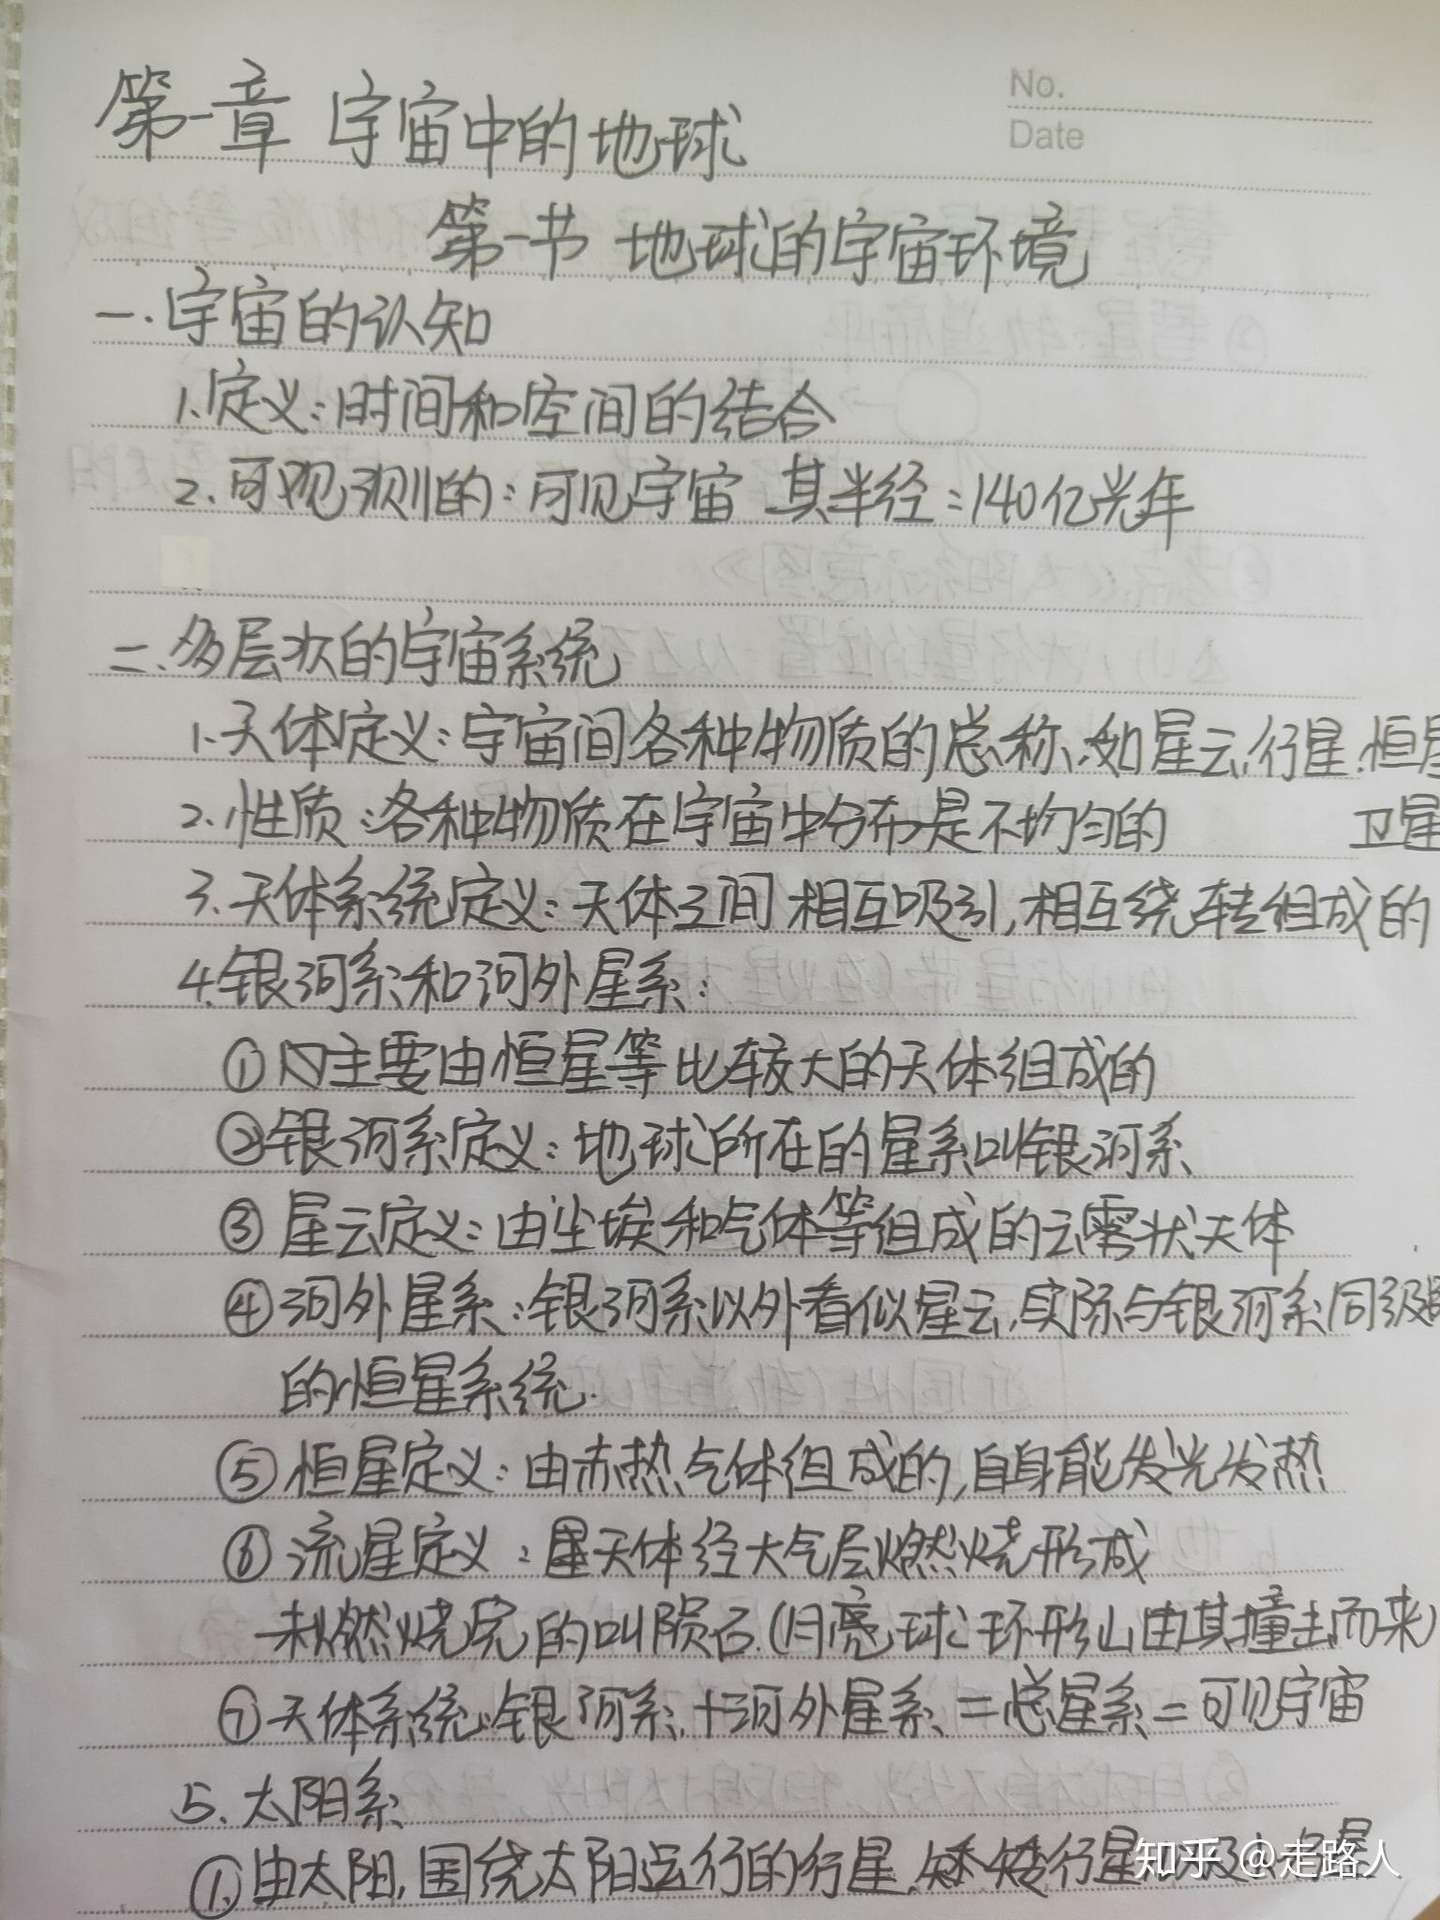 No.
Date
第一章 宇宙中的地球
第一节 地球的宇宙环境
一.宇宙的认知
1.定义:时间和空间的结合
2.可观测的:可见宇宙 其半径:140亿光年
二.多层次的宇宙系统
1.天体定义:宇宙间各种物质的总称,如星云,行星.恒星
2.性质:各种物质在宇宙中分布是不均匀的 卫星
3.天体系统定义:天体之间相互吸引,相互绕转组成的
4.银河系和河外星系:
①主要由恒星等比较大的天体组成的
②银河系定义:地球所在的星系叫银河系
③星云定义:由尘埃和气体等组成的云雾状天体
④河外星系:银河系以外看似星云,实际与银河系同级别
的恒星系统.
⑤恒星定义:由赤热气体组成的,自身能发光发热
⑥流星定义:天体经大气层燃烧形成
未燃烧完的叫陨石.(月亮球环形山由其撞击而来)
⑦天体系统:银河系+河外星系=总星系=可见宇宙
5.太阳系
①.由太阳,围绕太阳运行的行星,矮行星
知乎 @走路人